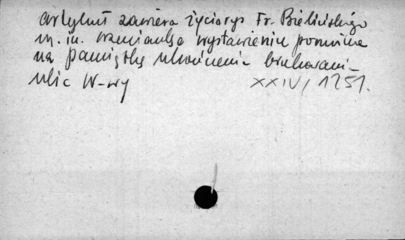 artykuł zawiera życiorys Fr. Bielińskiego
m. in. wzmianka wystawienie pomnika
na pamiątkę ukończenia brukowania
ulic W-wy XXIV/1251.